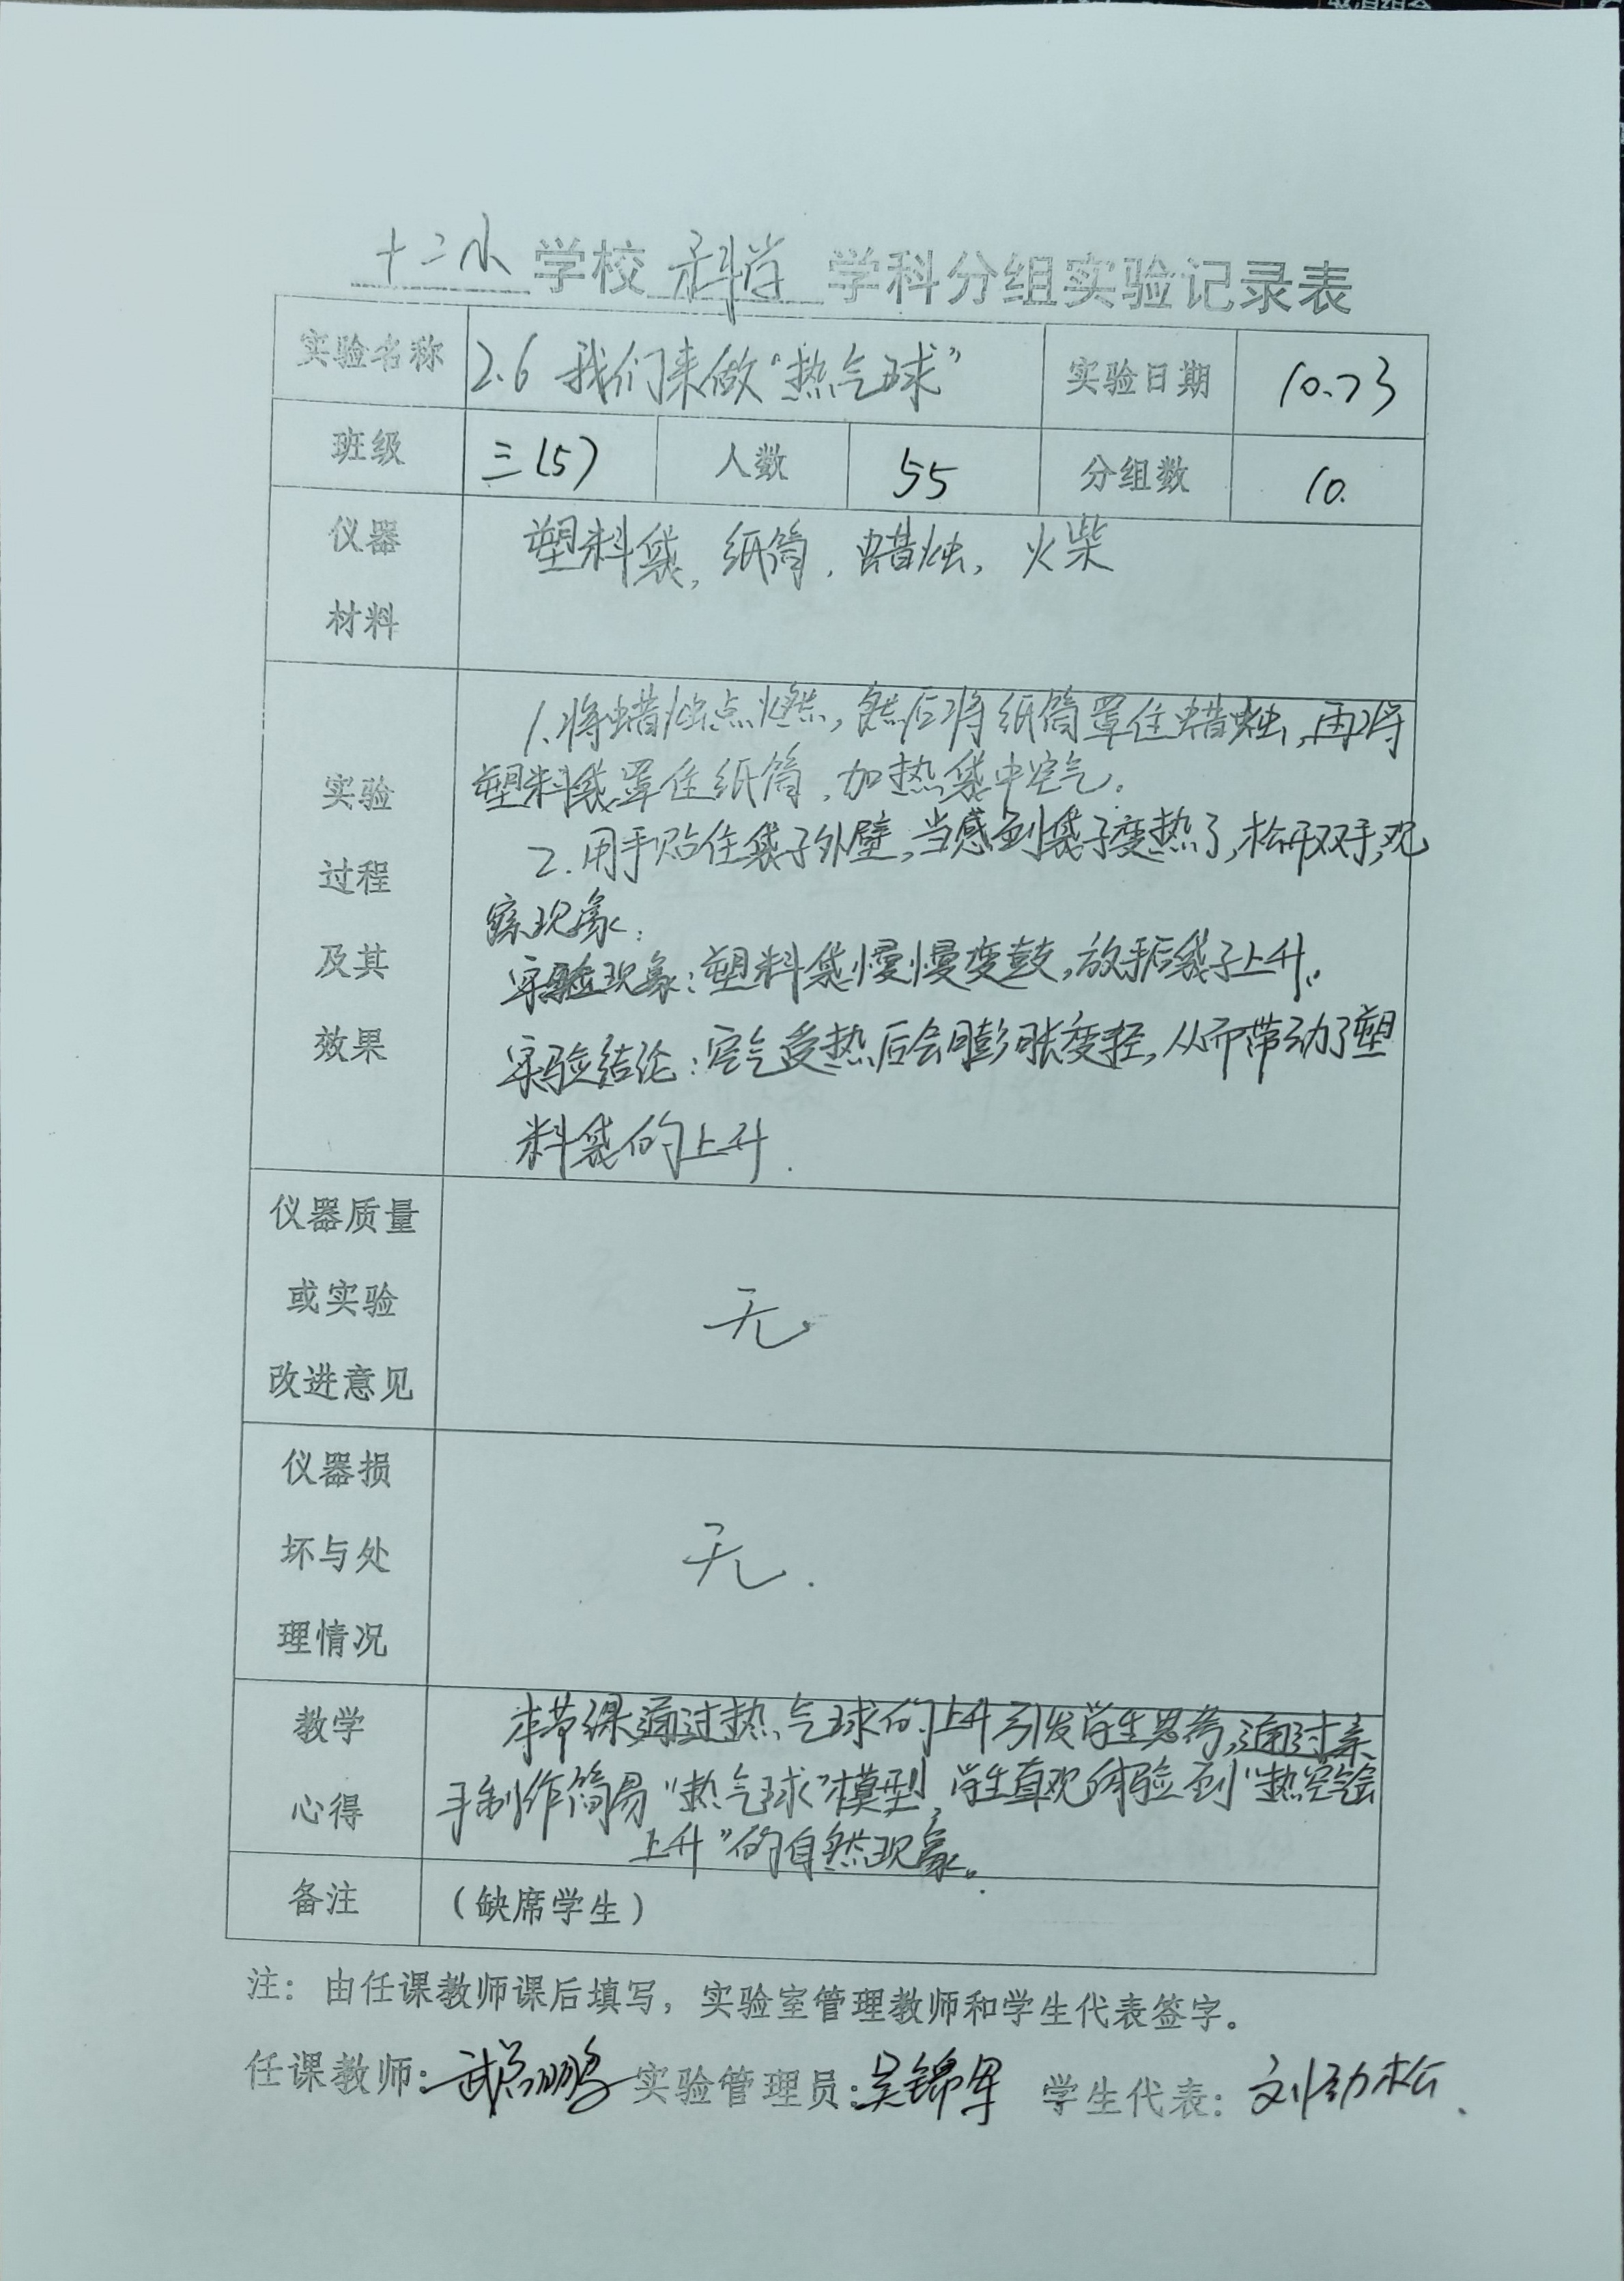 十二小学校科学学科分组实验记录表
实验名称 2.6 我们来做“热气球” 实验日期 10.23
班级 三(5) 人数 55 分组数 10.
仪器
材料
塑料袋, 纸筒, 蜡烛, 火柴
实验
过程
及其
效果
1.将蜡烛点燃,然后将纸筒罩住蜡烛,再将
塑料袋罩住纸筒,加热袋中空气.
2.用手贴住袋子外壁,当感到袋子变热了,松开双手,观
察现象:
实验现象:塑料袋慢慢变鼓,放手后袋子上升。
实验结论:空气受热后会膨胀变轻,从而带动了塑
料袋的上升.
仪器质量
或实验
改进意见
无
仪器损
坏与处
理情况
无.
教学
心得
本节课通过热气球的上升引发学生思考,通过亲
手制作简易“热气球”模型,学生直观体验到“热空气会
上升”的自然现象。
备注 (缺席学生)
注：由任课教师课后填写，实验室管理教师和学生代表签字。
任课教师: 实验管理员:吴锦军 学生代表: 刘劲松.